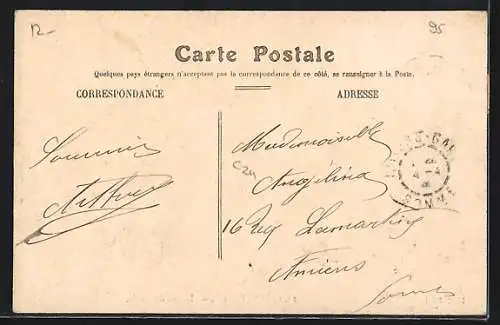 12-
95
Carte Postale
Quelques pays étrangers n'acceptent pas la correspondance de ce côté, se renseigner à la Poste.
CORRESPONDANCE
ADRESSE
Souvenir
Arthur
Mademoiselle
C24
Angélina
16 Rue Lamartine
Amiens
Somme
SOMME